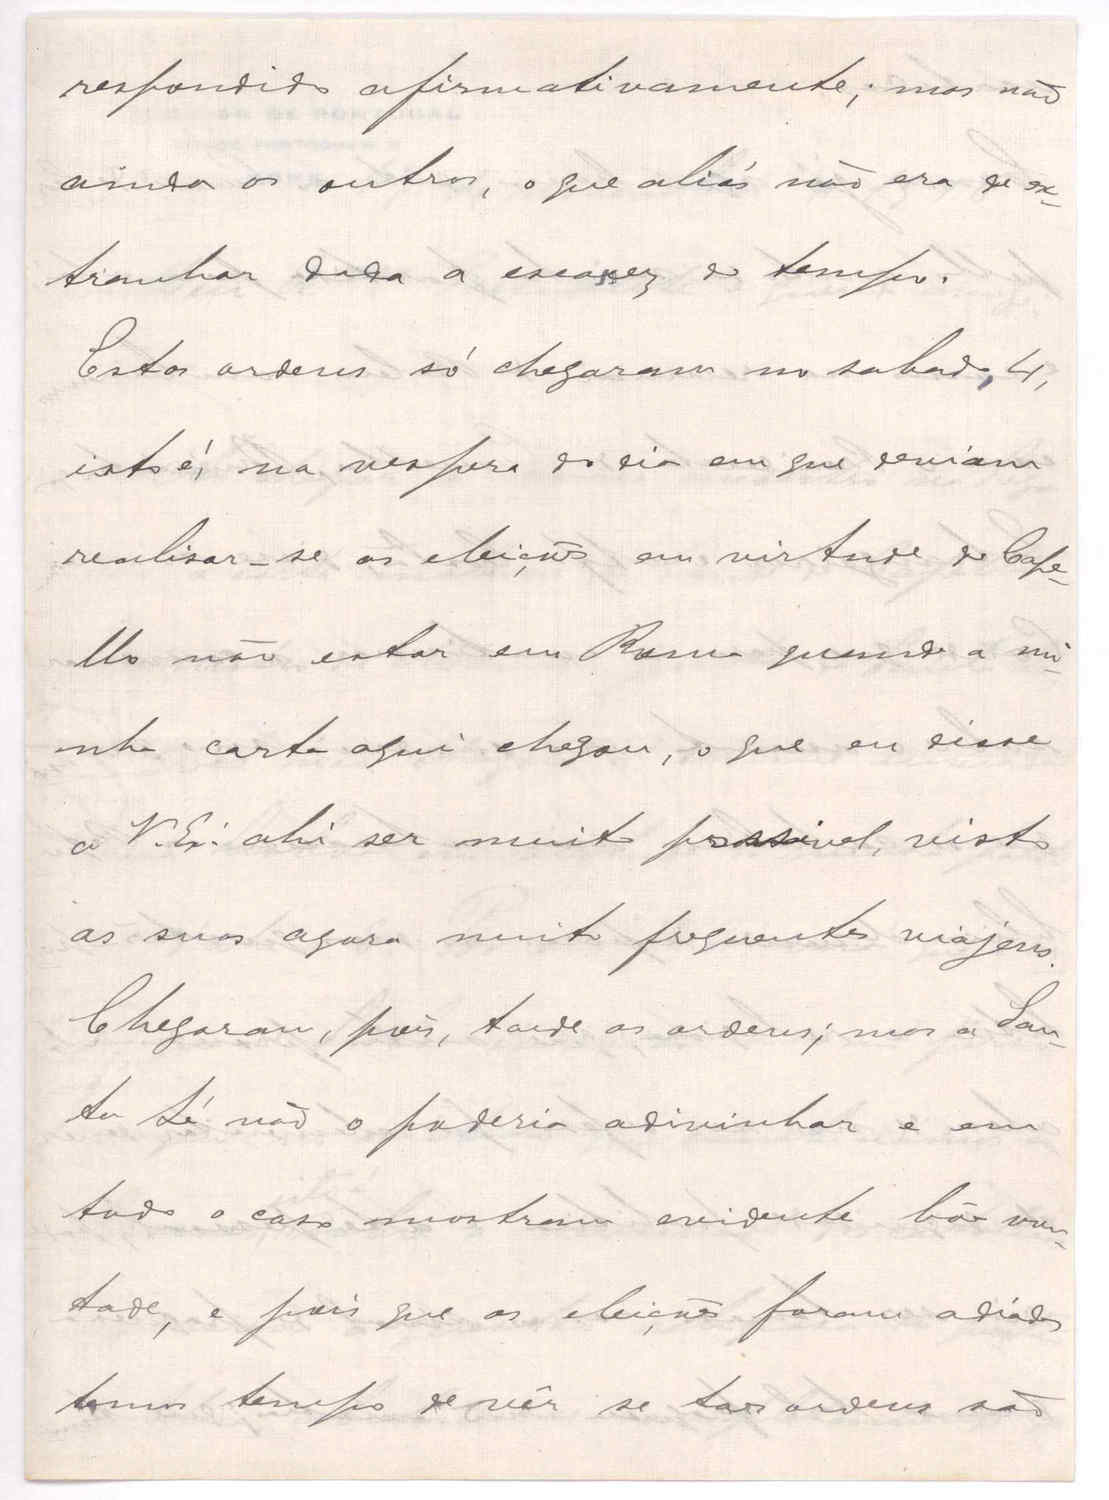 respondido afirmativamente; mas não
ainda os outros, o que aliás não era de ex-
tranhar dada a escassez do tempo.
Estas ordens só chegaram no sabado, 4,
isto é, na vespera do dia em que deviam
realisar-se as eleições em virtude de Cape-
llo não estar em Roma quando a mi-
nha carta aqui chegou, o que eu disse
a V. Ex.ª ahi ser muito possivel, visto
as suas agora muito frequentes viajens.
Chegaram, pois, tarde as ordens; mas a San-
ta Sé não o poderia adivinhar e em
todo o caso mostram evidente bôa von-
tade, e pois que as eleições foram adiadas
temos tempo de vêr se taes ordens são